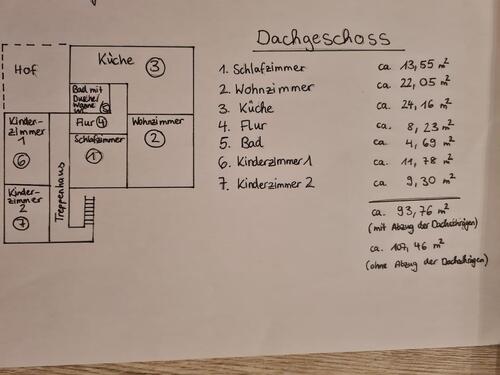 Dachgeschoss
Hof
Küche
3
Bad mit
Dusche/
Wanne
5
Flur 4
Schlafzimmer
1
Wohnzimmer
2
Kinder-
zimmer
1
6
Kinder-
zimmer
2
7
Treppenhaus
1. Schlafzimmer ca. 13,55 m²
2. Wohnzimmer ca. 22,05 m²
3. Küche ca. 24,16 m²
4. Flur ca. 8,23 m²
5. Bad ca. 4,69 m²
6. Kinderzimmer 1 ca. 11,78 m²
7. Kinderzimmer 2 ca. 9,30 m²
ca. 93,76 m²
(mit Abzug der Dachschrägen)
ca. 107,46 m²
(ohne Abzug der Dachschrägen)